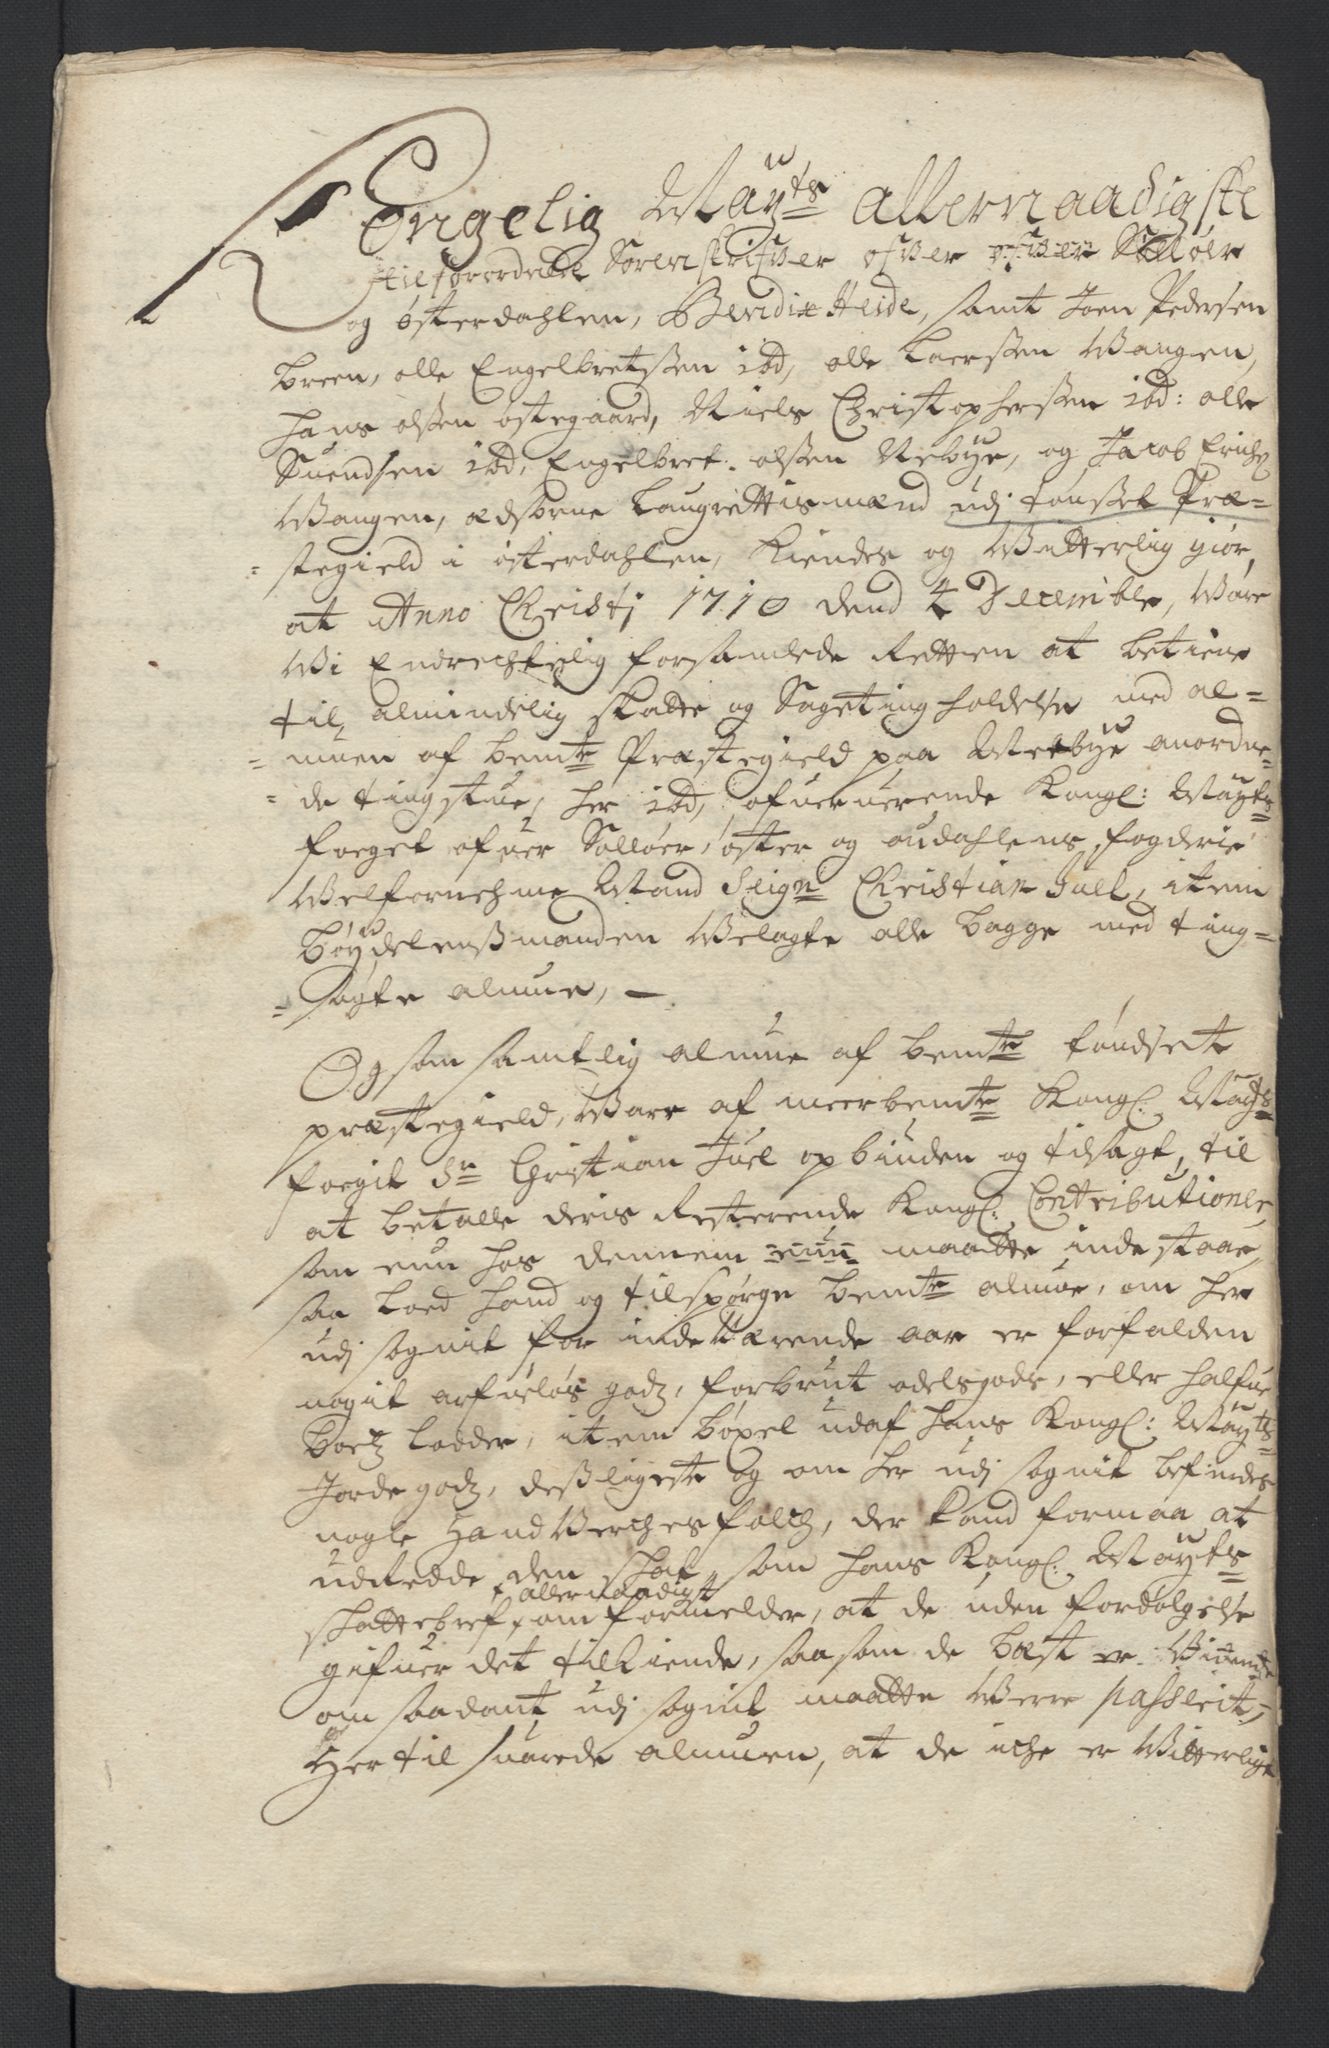 Kongelig Mayts allernaadigste
tilforordnede Sorenskrifver ofver ofver Solløer
og østerdahlen, Bendix Heide, samt Joen Pedersen
breen, olle Engelbretsen ibd, olle Laersen Wangen,
hans olsen østegaard, Niels Christophersen ibd: olle
Suendsen ibd, Engelbret olsen Nebye, og Jacob Erichs
Wangen, edsorne Laugrettismænd udj tønset Præ-
stegield i østerdahlen, Kiendes og Witterlig giør,
at Anno Christj 1710 dend 4 Decemble, Ware
Wi Endrechtelig forsamlede Retten at betiene
til almindelig skatte og Sageting holdelse med al-
muen af bemte Præstegield paa Nebye anordne-
de tingstue, her ibd, ofueruerende Kongl: Mayts
foeget ofuer Solløer, øster og oudahlens fogderie
Welfornehme Mand Seign Christian Juel, item
bøydelensmanden Welagte olle bagge med ting-
søgte almue, —
Og som samtlig almue af bemte tøndset
præstegield, Ware af meerbemte Kongl: Mayts
foegit Sr Christian Juel opbuden og tilsagt, til
at betalle deris Resterende Kongl: Contributioner
som nun hos dennem nun maatte inde staae,
saa loed hand og tilspørge bemte almue, om her
udj sognit for indeWærende aar er forfalden
nogit arfueløs godz, forbrut odelsgods, eller halfue
boetz lodder, item bøxel udaf hans Kongl: Mayts
Jordegodz, desligeste og om her udj sognit befindes
nogle HandWerchesfolch, der kand formaa at
udRedde den skat som hans Kongl: Mayts
allernaadigst
skattebref om formelder, at de uden fordølgelse
gifuer det tilKiende, saasom de bæst er Widende
om saadant udj sognit maatte Werre passerit,
Hertil suarede almuen, at de iche er Witterligt